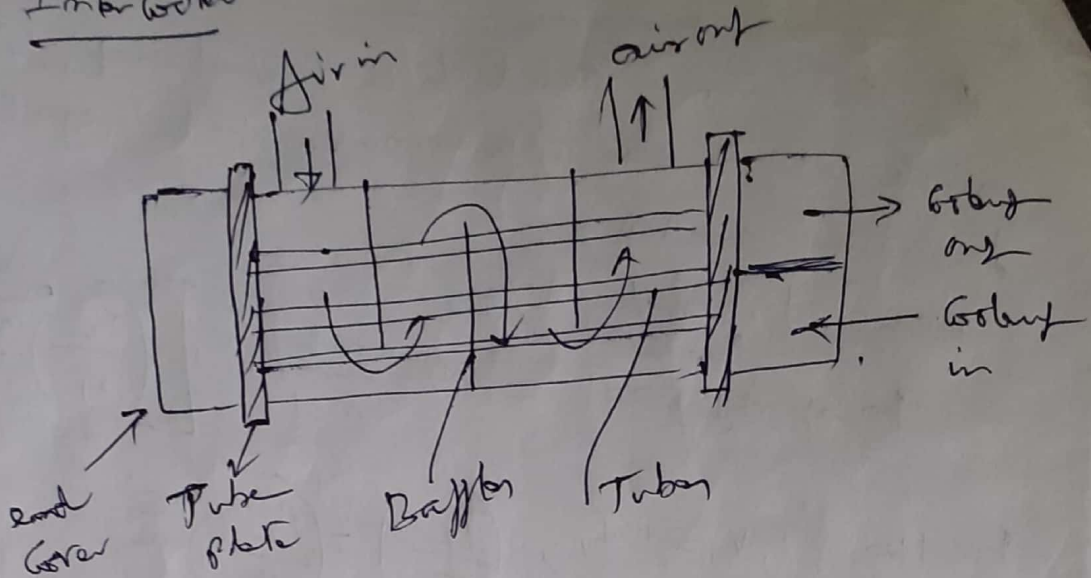 Inter Cooler
Air in
air out
Cooling
out
Cooling
in
end
Cover
Tube
plate
Baffles
Tubes